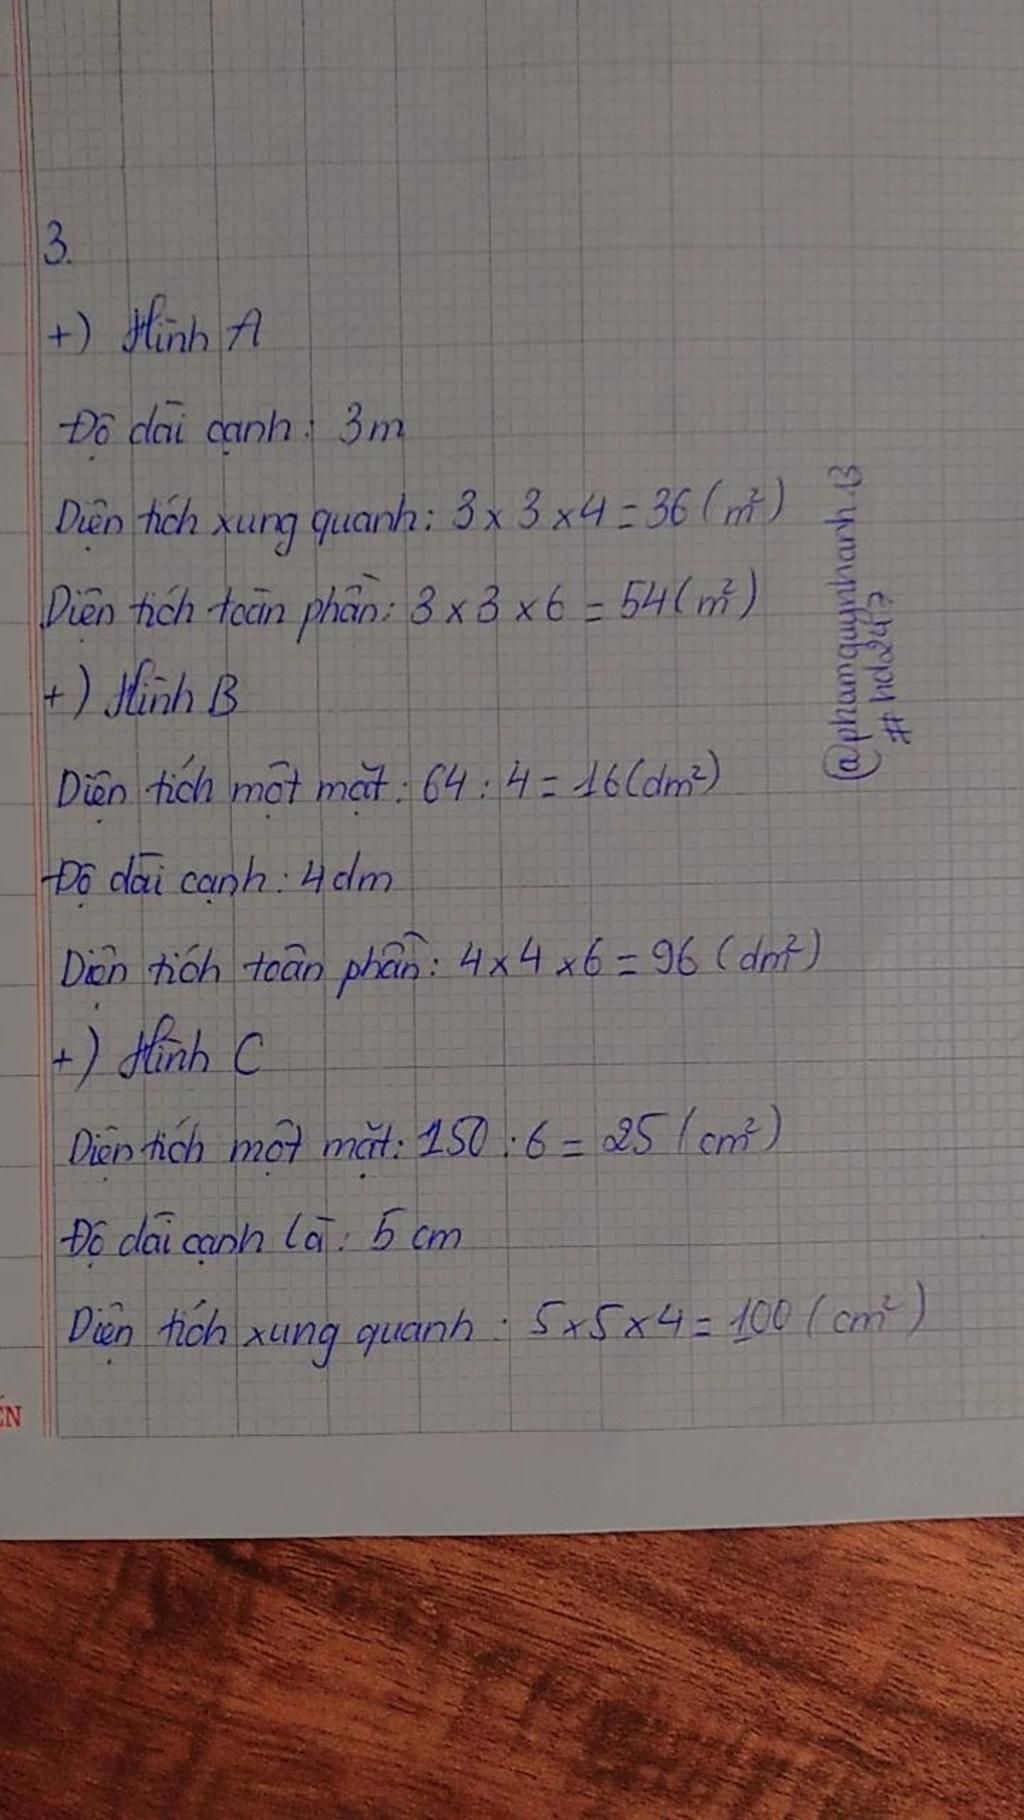 3.
+) Hình A
Độ dài cạnh: 3m
Diện tích xung quanh: 3 x 3 x 4 = 36 (m²)
Diện tích toàn phần: 3 x 3 x 6 = 54 (m²)
+) Hình B
Diện tích một mặt: 64 : 4 = 16 (dm²)
Độ dài cạnh: 4dm
Diện tích toàn phần: 4 x 4 x 6 = 96 (dm²)
+) Hình C
Diện tích một mặt: 150 : 6 = 25 (cm²)
Độ dài cạnh là: 5 cm
Diện tích xung quanh: 5 x 5 x 4 = 100 (cm²)
@phamquynhanh13
#hd247
ẾN